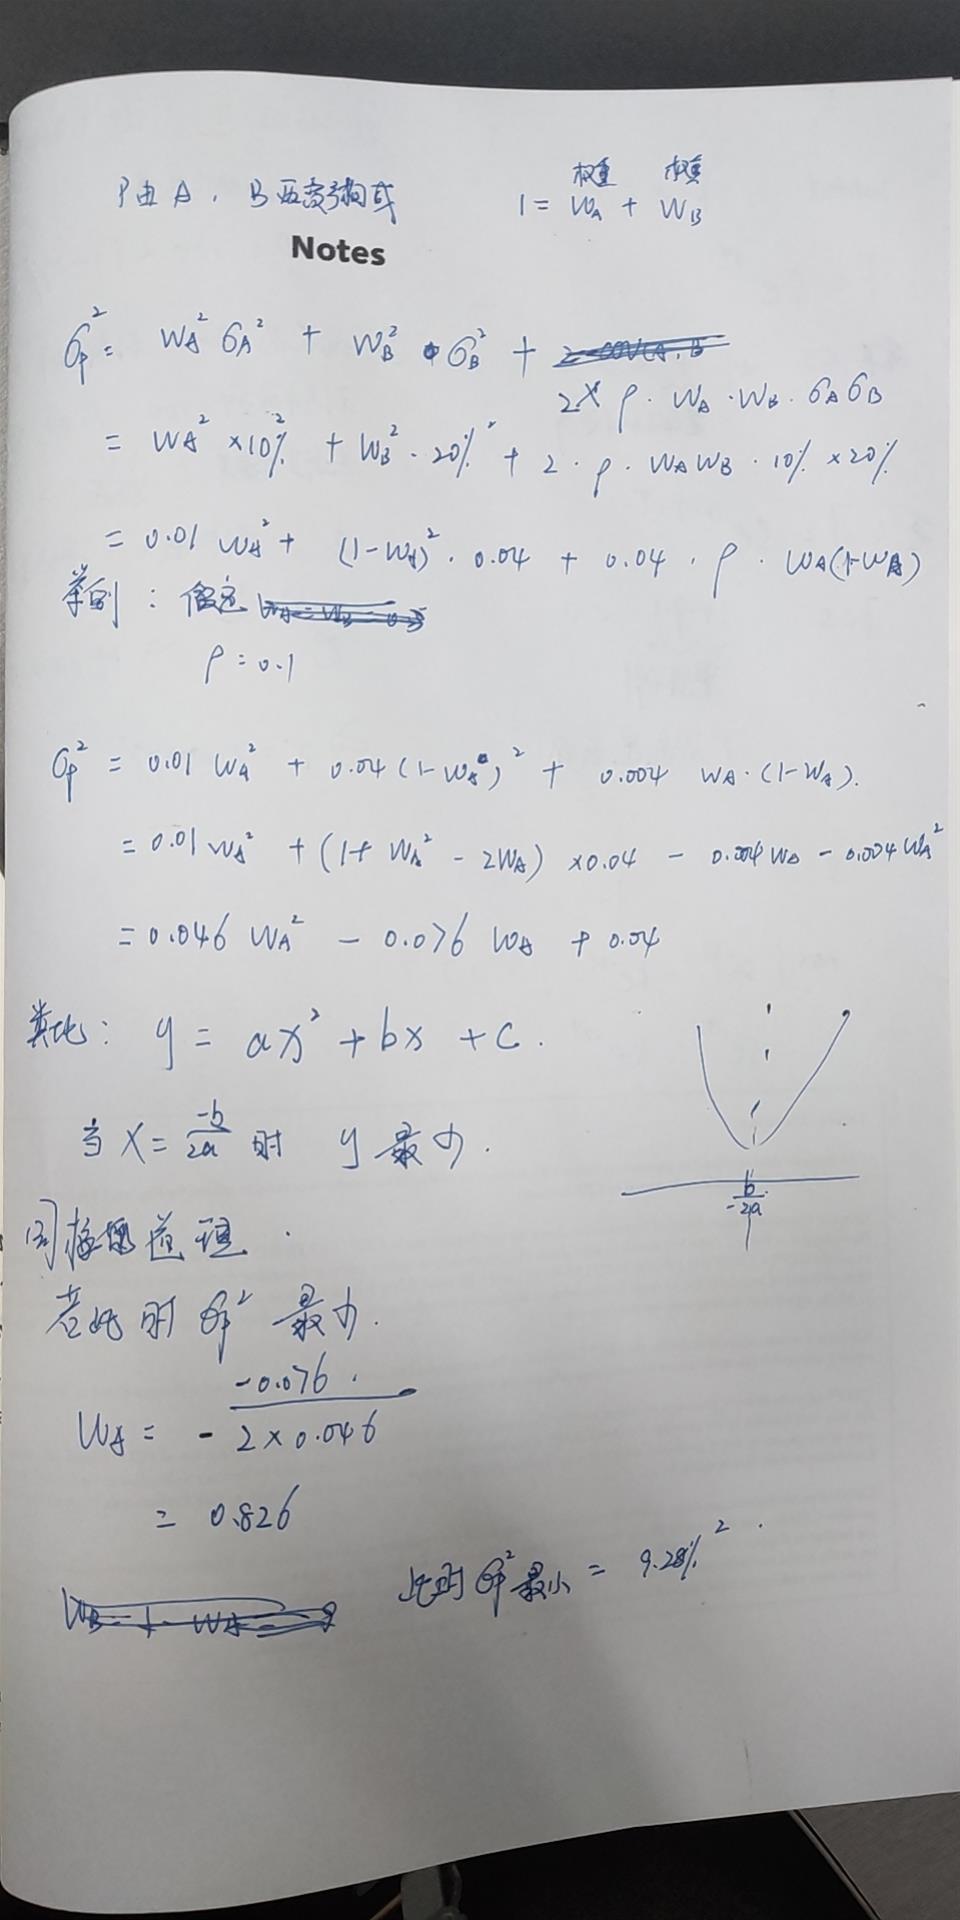 P由 A、B 两资产构成
权重 权重
1 = W_A + W_B
Notes
σ_P² = W_A² σ_A² + W_B² · σ_B² +
2 × ρ · W_A · W_B · σ_A σ_B
= W_A² × 10%² + W_B² · 20%² + 2 · ρ · W_A W_B · 10% × 20%
= 0.01 W_A² + (1-W_A)² · 0.04 + 0.04 · ρ · W_A(1-W_A)
举例：假定
ρ = 0.1
σ_P² = 0.01 W_A² + 0.04 (1-W_A)² + 0.004 W_A · (1-W_A).
= 0.01 W_A² + (1+ W_A² - 2W_A) × 0.04 - 0.004 W_A - 0.004 W_A²
= 0.046 W_A² - 0.076 W_A + 0.04
类比： y = ax² + bx + c .
当 X = -b/2a 时 y 最小.
b
-2a
同样的道理.
若此时 σ_P² 最小.
W_A = - -0.076 / 2×0.046
= 0.826
此时 σ_P² 最小 = 9.28%² .